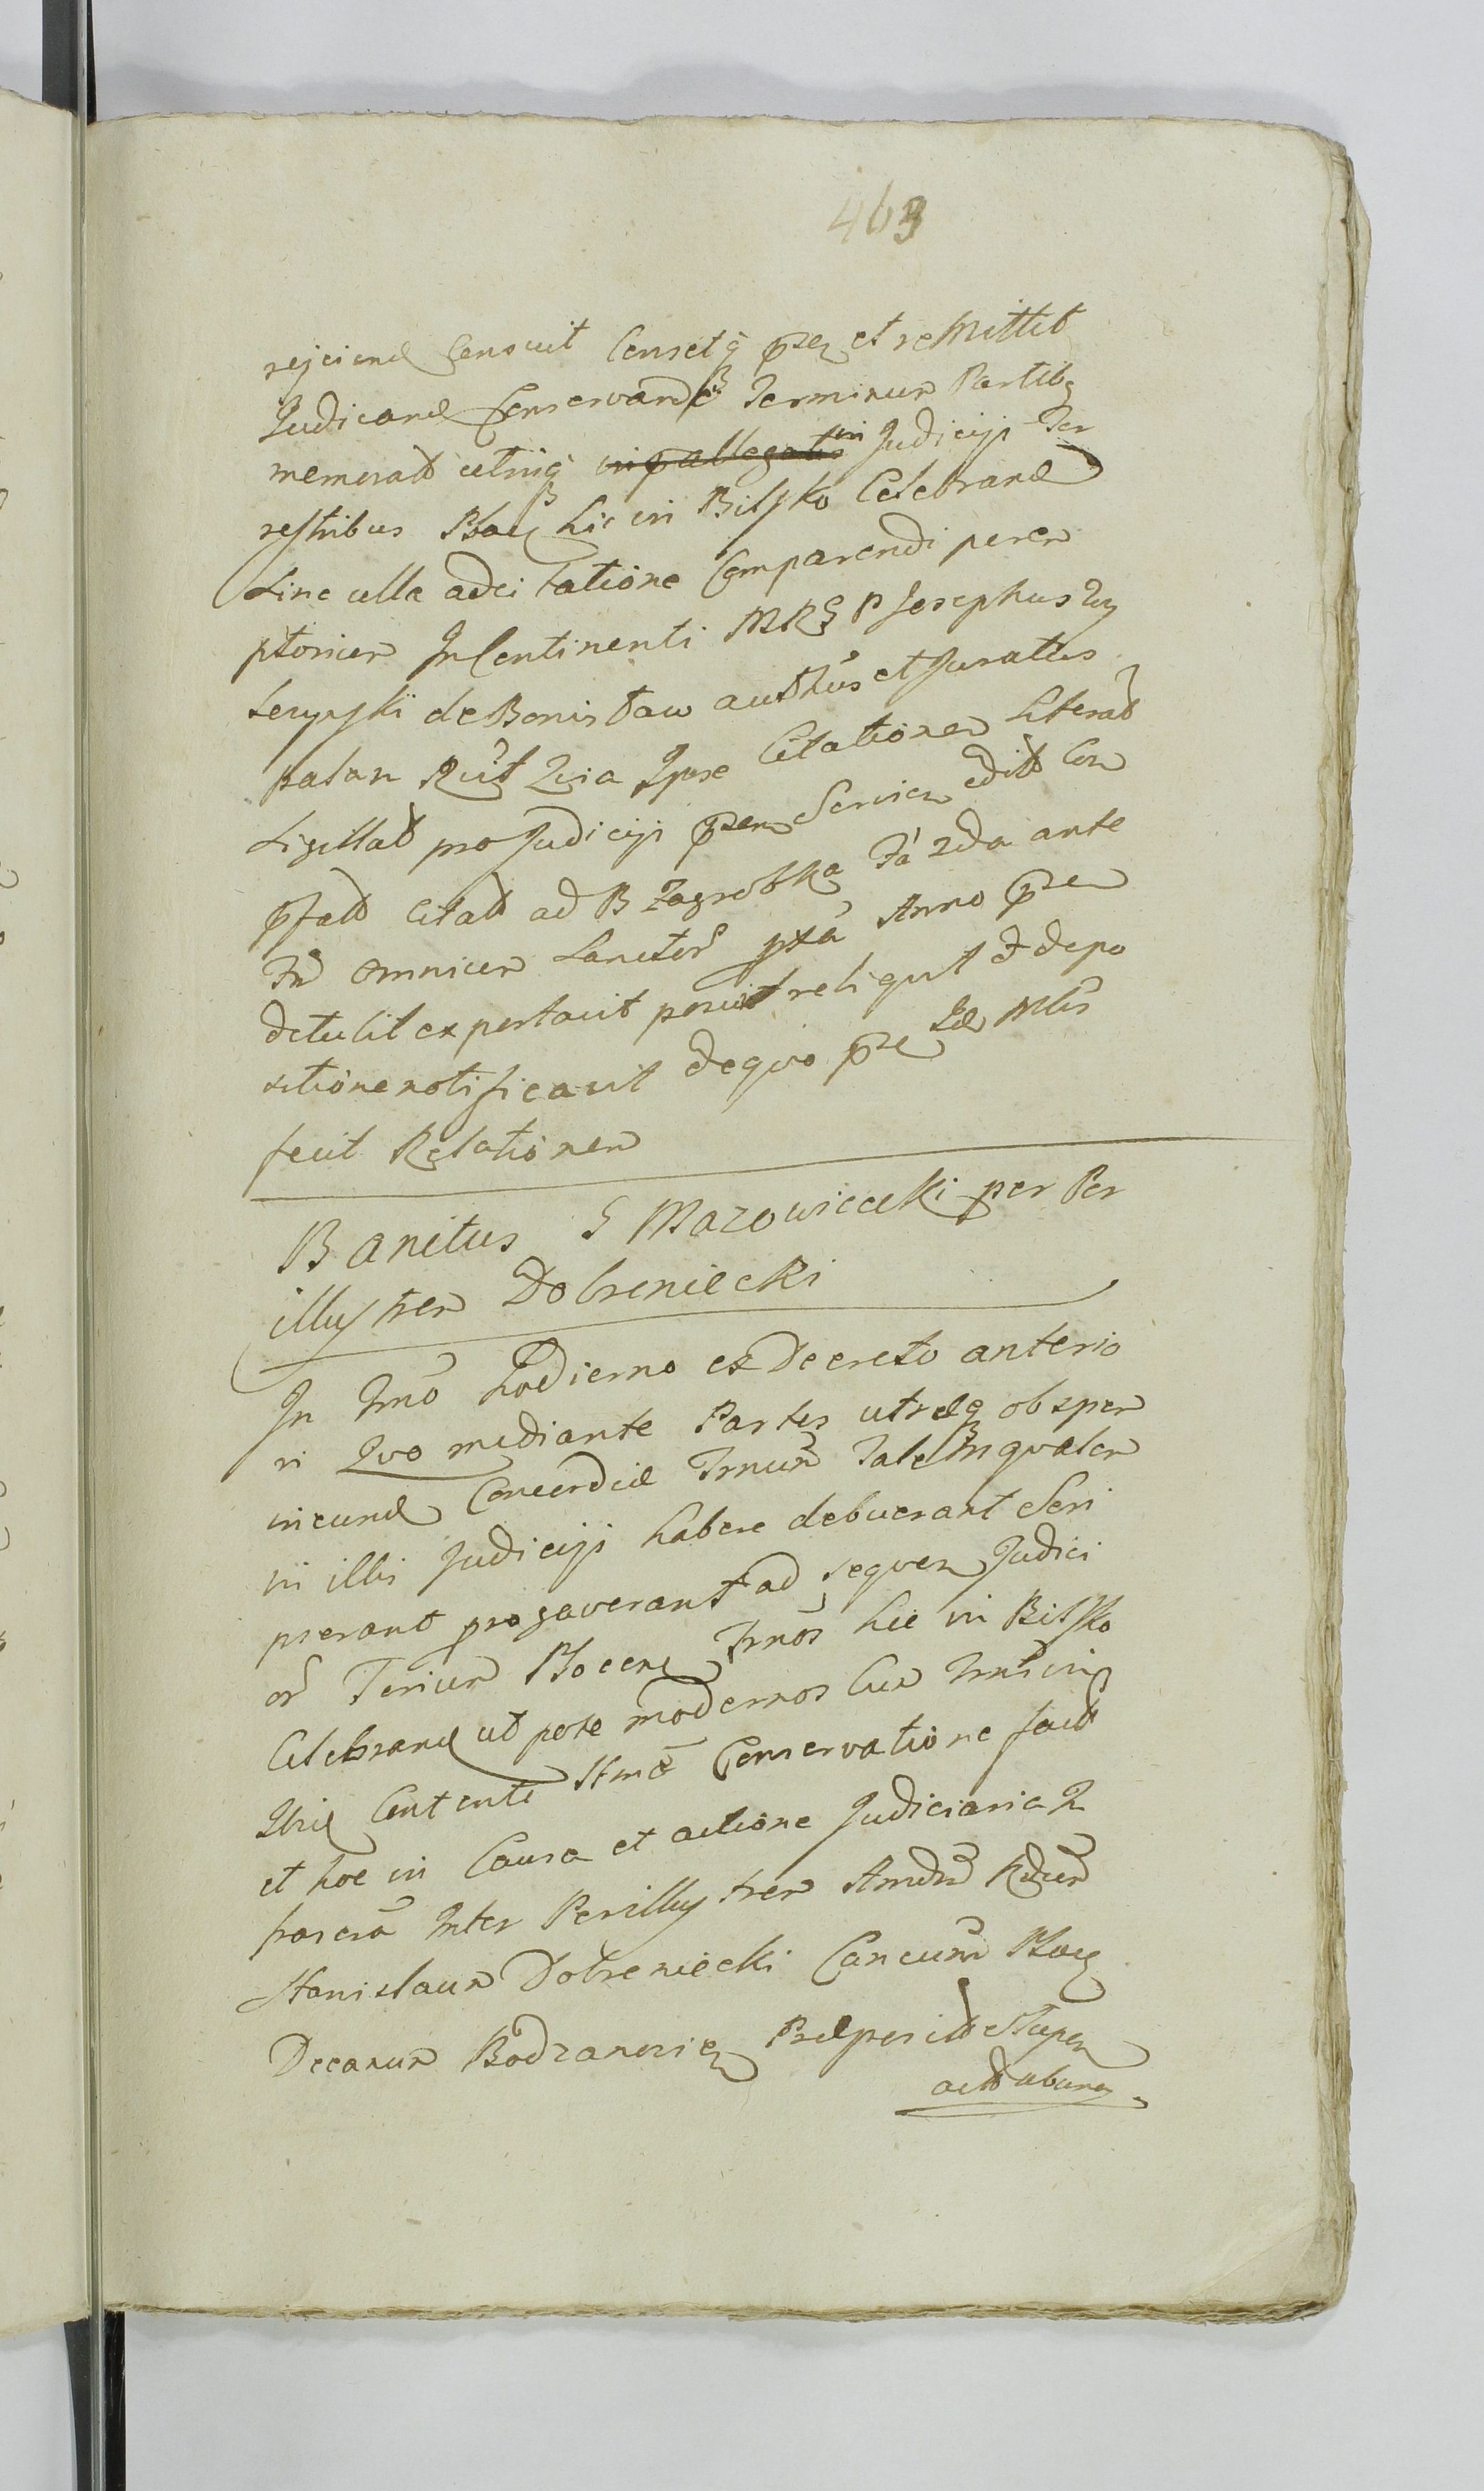 463
rejciend Censuit Censetq prn et reMittit
Judicand Conservando Terminum Partibq
memorat utriq in Judicijs Ter
restribus Ploc hic in Bilsko Celebrand
sine ulla adcitatione Comparendi perem
ptorium InContinenti MRS P Josephus
de Bonisław authus et Juratus
palam Quia Ipse Citationem literat
sigillat pro Judicijs prn Servien edit Con
pfatt Citatt ad B Zagrobka Fa 2da ante
Fm omnium Sanctor pta Anno prn
detulit exportavit posuit reliquit et depo
sitione notificavit de quo prn
fecit Relationem
Banitus S Mazowiecki per Per
illustrem Dobreniecki
In Tmo hodierno ex Decreto anterio
ri Quo mediante Partes utraeq ob sper
ineund Concordiae Tmum Talem qualem
in illis Judicijs habere debuerant Scri
pserant progaverant ad sequen Judici
or Terium Plocen Tmos hic in Bilsko
Celebrand ut pote modernos Cum
Contenti Conservatione fact
et hoc in Causa et actione Judiciaria In
frascra Inter Perillustrem Amdum Rdum
Stanislaum Dobreniecki Cancum Ploc
Decanum Bodzanovien Praeposit Slupen
actt ab una